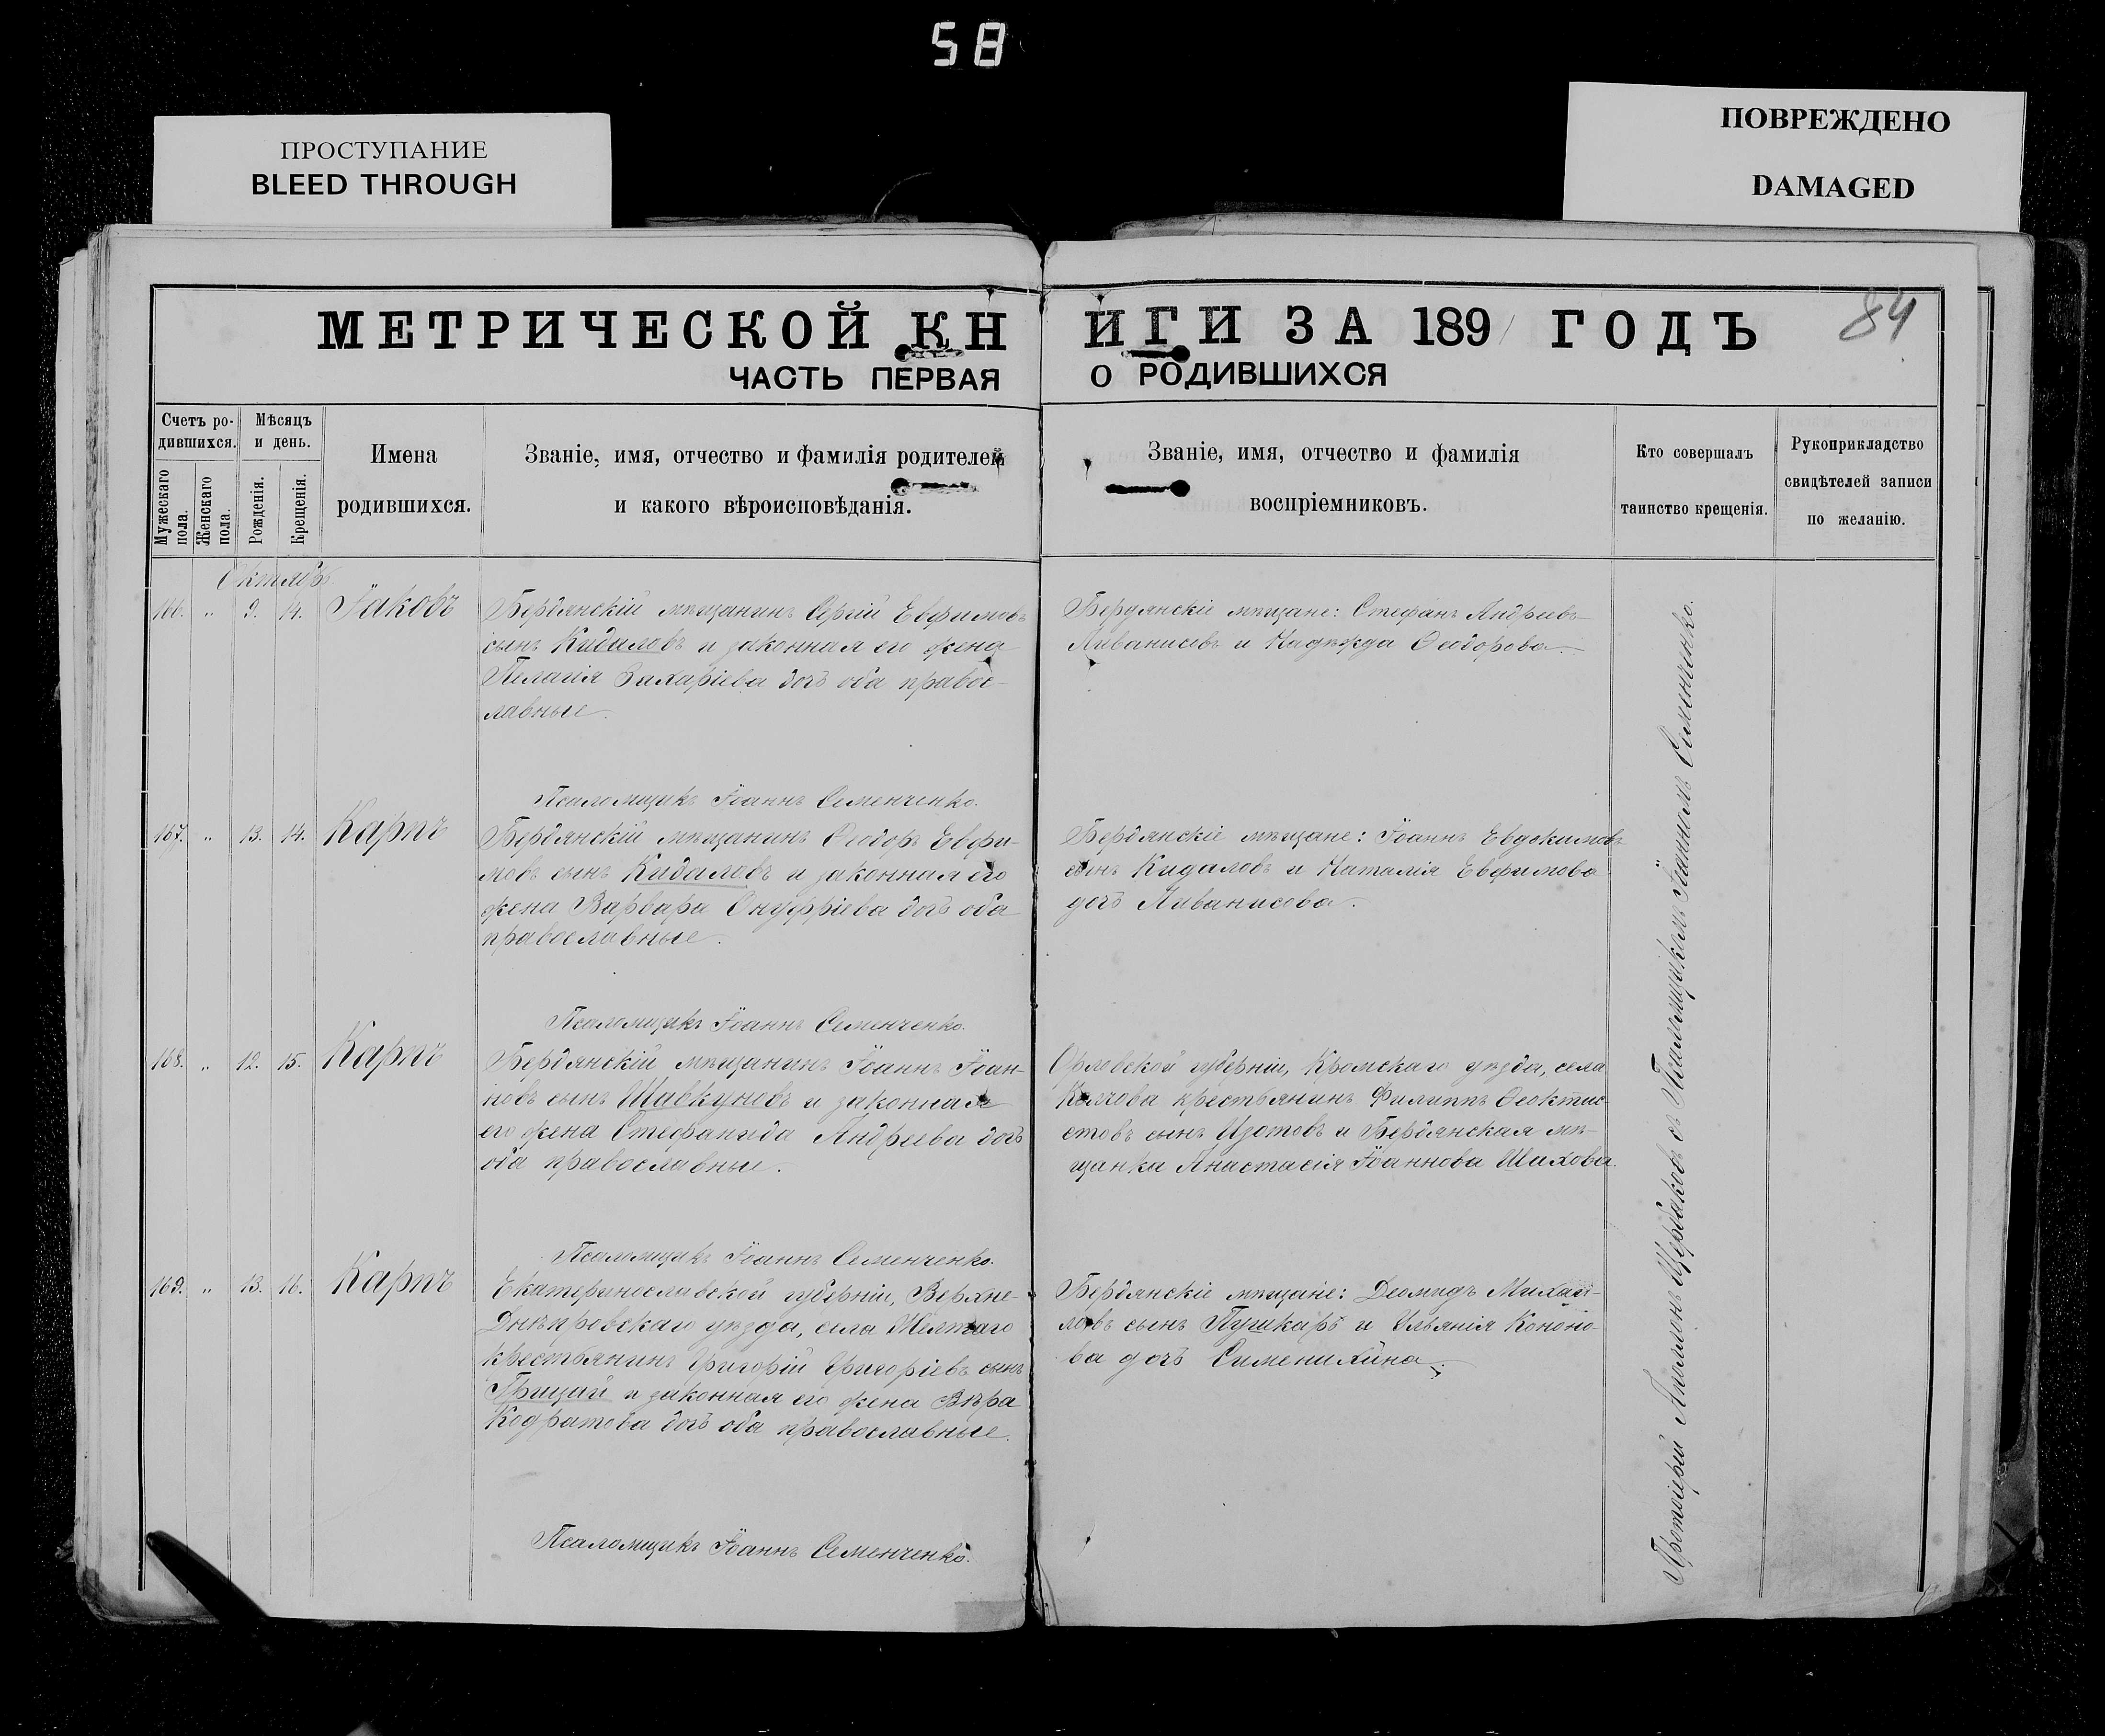 58
ПРОСТУПАНИЕ
BLEED THROUGH
ПОВРЕЖДЕНО
DAMAGED
МЕТРИЧЕСКОЙ КНИГИ ЗА 1891 ГОДЪ
84
ЧАСТЬ ПЕРВАЯ О РОДИВШИХСЯ
Счетъ ро-
дившихся.
Мужескаго
пола.
Женскаго
пола.
Мѣсяцъ
и день.
Рожденія.
Крещенія.
Имена
родившихся.
Званіе, имя, отчество и фамилія родителей
и какого вѣроисповѣданія.
Званіе, имя, отчество и фамилія
воспріемниковъ.
Кто совершалъ
таинство крещенія.
Рукоприкладство
свидѣтелей записи
по желанію.
Октябрь.
166. " 9. 14. Іаковъ
Бердянскій мѣщанинъ Сергій Евфимовъ
сынъ Кидаловъ и законная его жена
Пелагія Захаріева дочь оба правос-
лавные.
Бердянскіе мѣщане: Стефанъ Андреевъ
Ливанисовъ и Надежда Ѳеодорова.
Псаломщикъ Іоаннъ Семенченко.
167. " 13. 14. Карпъ
Бердянскій мѣщанинъ Ѳеодоръ Евфи-
мовъ сынъ Кидаловъ и законная его
жена Варвара Онуфріева дочь оба
православные.
Бердянскіе мѣщане: Іоаннъ Евдокимовъ
сынъ Кидаловъ и Наталія Евфимова
дочь Ливанисова.
Псаломщикъ Іоаннъ Семенченко.
168. " 12. 15. Карпъ
Бердянскій мѣщанинъ Іоаннъ Іоан-
новъ сынъ Шавкуновъ и законная
его жена Стефанида Андреева дочь
оба православные.
Орловской губерніи, Кромскаго уѣзда, села
крестьянинъ Филиппъ Ѳеоктис-
стовъ сынъ Изотовъ и Бердянская мѣ-
щанка Анастасія Іоаннова Шахова.
Псаломщикъ Іоаннъ Семенченко.
169. " 13. 16. Карпъ
Екатеринославской губерніи, Верхне-
Днѣпровскаго уѣзда, села Желтаго
крестьянинъ Григорій Григоріевъ сынъ
и законная его жена Вѣра
Кодратова дочь оба православные.
Бердянскіе мѣщане: Деомидъ Михаи-
ловъ сынъ Пушкарь и Ульянія Кононо-
ва дочь Сименихина.
Псаломщикъ Іоаннъ Семенченко.
Протоіерей Щербаковъ съ Псаломщикомъ Іоанномъ Семенченко.